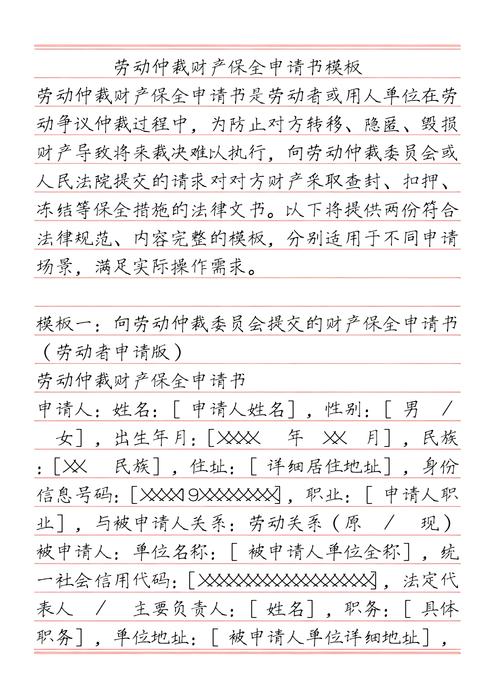 劳动仲裁财产保全申请书模板
劳动仲裁财产保全申请书是劳动者或用人单位在劳
动争议仲裁过程中，为防止对方转移、隐匿、毁损
财产导致将来裁决难以执行，向劳动仲裁委员会或
人民法院提交的请求对对方财产采取查封、扣押、
冻结等保全措施的法律文书。以下将提供两份符合
法律规范、内容完整的模板，分别适用于不同申请
场景，满足实际操作需求。
模板一：向劳动仲裁委员会提交的财产保全申请书
（劳动者申请版）
劳动仲裁财产保全申请书
申请人：姓名：[ 申请人姓名]，性别：[ 男 /
女]，出生年月：[XXXX 年 XX 月]，民族
：[XX 民族]，住址：[ 详细居住地址]，身份
信息号码：[XXXX19XXXXXXXX]，职业：[ 申请人职
业]，与被申请人关系：劳动关系（原 / 现）
被申请人：单位名称：[ 被申请人单位全称]，统
一社会信用代码：[XXXXXXXXXXXXXXXXXX]，法定代
表人 / 主要负责人：[ 姓名]，职务：[ 具体
职务]，单位地址：[ 被申请人单位详细地址]，